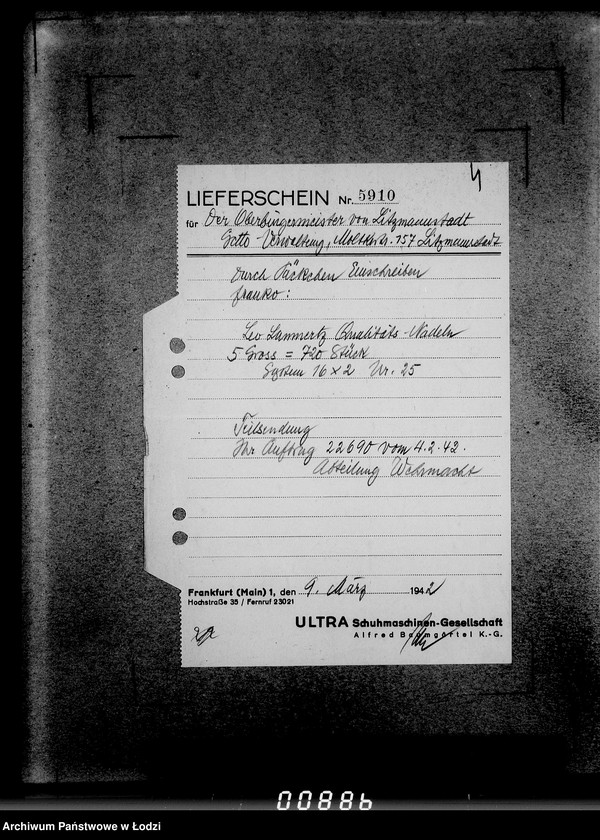 LIEFERSCHEIN Nr. 5910
für Der Oberbürgermeister von Litzmannstadt
Getto-Verwaltung, Moltkestr. 157 Litzmannstadt
durch Päckchen Einschreiben
franko:
Leo Lammertz Qualitäts-Nadeln
5 Gross = 720 Stück
System 16 x 2 Nr. 25
Teilsendung
Ihr Auftrag 22690 vom 4.2.42.
Abteilung Wehrmacht
Frankfurt (Main) 1, den 9. März 1942
Hochstraße 35 / Fernruf 23021
ULTRA Schuhmaschinen-Gesellschaft
Alfred Baumgärtel K.-G.
00886
Archiwum Państwowe w Łodzi